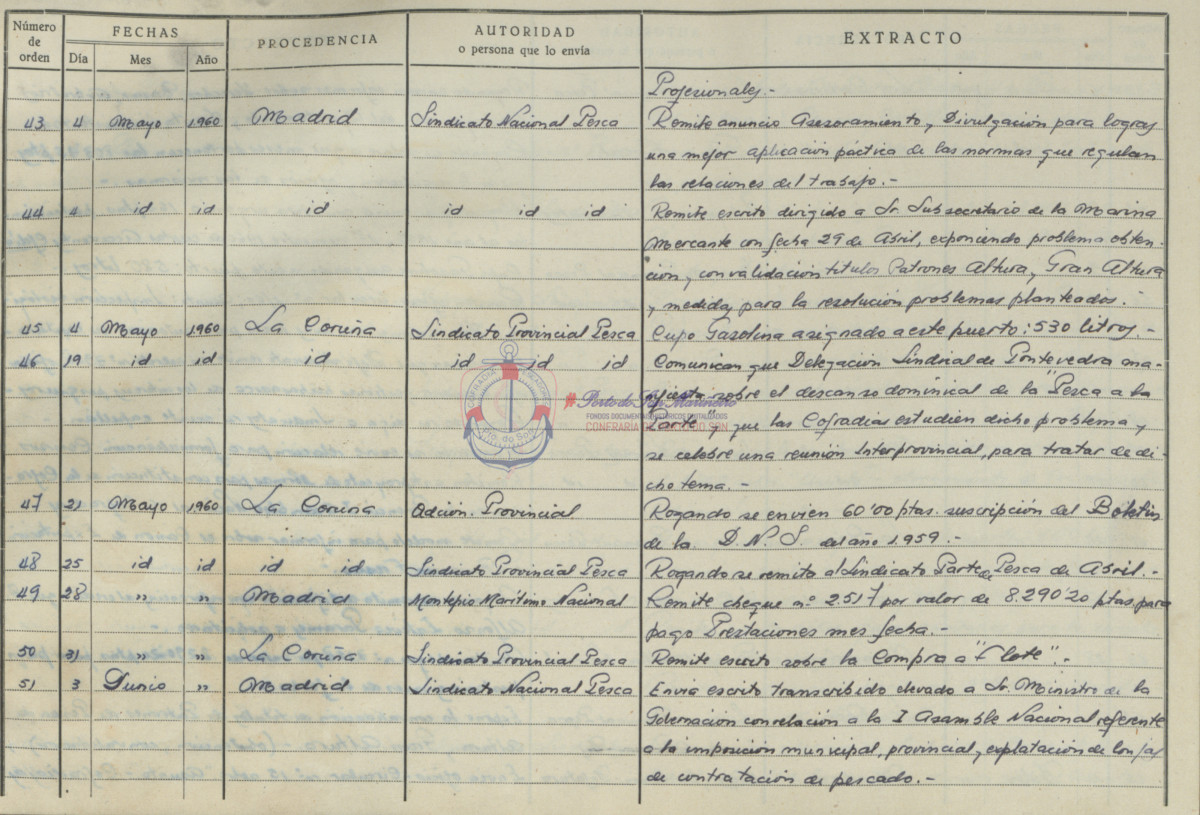 Número de orden | FECHAS | PROCEDENCIA | AUTORIDAD o persona que lo envía | EXTRACTO
Día | Mes | Año
Profesionales.-
43 4 Mayo 1960 Madrid Sindicato Nacional Pesca Remite anuncio Asesoramiento y Divulgación para lograr
una mejor aplicación páctica de las normas que regulan
las relaciones del trabajo.-
44 4 id id id id id id Remite escrito dirigido a Sr. Subsecretario de la Marina
Mercante con fecha 29 de Abril, exponiendo problema obten-
ción y convalidación títulos Patrones Altura, Gran Altura
y medidas para la resolución problemas planteados.-
45 4 Mayo 1960 La Coruña Sindicato Provincial Pesca Cupo Gasolina asignado a este puerto: 530 litros.-
46 19 id id id id id id Comunican que Delegación Sindical de Pontevedra ma-
nifiesta sobre el descanso dominical de la "Pesca a la
Parte" y que las Cofradías estudien dicho problema y
se celebre una reunión Interprovincial, para tratar de di-
cho tema.-
47 21 Mayo 1960 La Coruña Admón. Provincial Rogando se envien 60'00 ptas. suscripción del Boletín
de la D.N.S. del año 1.959.-
48 25 id id id id Sindicato Provincial Pesca Rogando se remita al Sindicato Parte de Pesca de Abril.-
49 28 " " Madrid Montepío Marítimo Nacional Remite cheque nº 2.517 por valor de 8.290'20 ptas para
pago Prestaciones mes fecha.-
50 31 " " La Coruña Sindicato Provincial Pesca Remite escrito sobre la Compra a "Flote".-
51 3 Junio " Madrid Sindicato Nacional Pesca Envia escrito transcribido elevado a Sr. Ministro de la
Gobernación con relación a la I Asamble Nacional referente
a la imposición municipal, provincial y explatación de lonjas
de contratación de pescado.-
# Porto do Son Mariñeiro
FONDOS DOCUMENTAIS HISTÓRICOS DIXITALIZADOS
CONFRARÍA DE PORTO DO SON